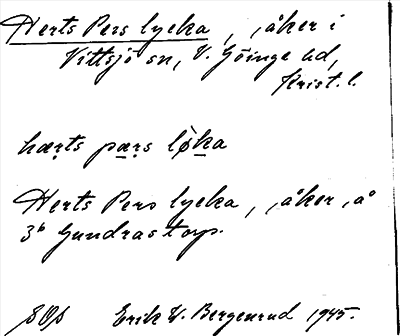 Herts Pers lycka, åker i
Vittsjö sn, V. Göinge hd,
Krist. l.
hærts pærs løka
Herts Pers lycka, åker, å
3ᵇ Gundrastorp.
Erik W. Bergenrud 1945.